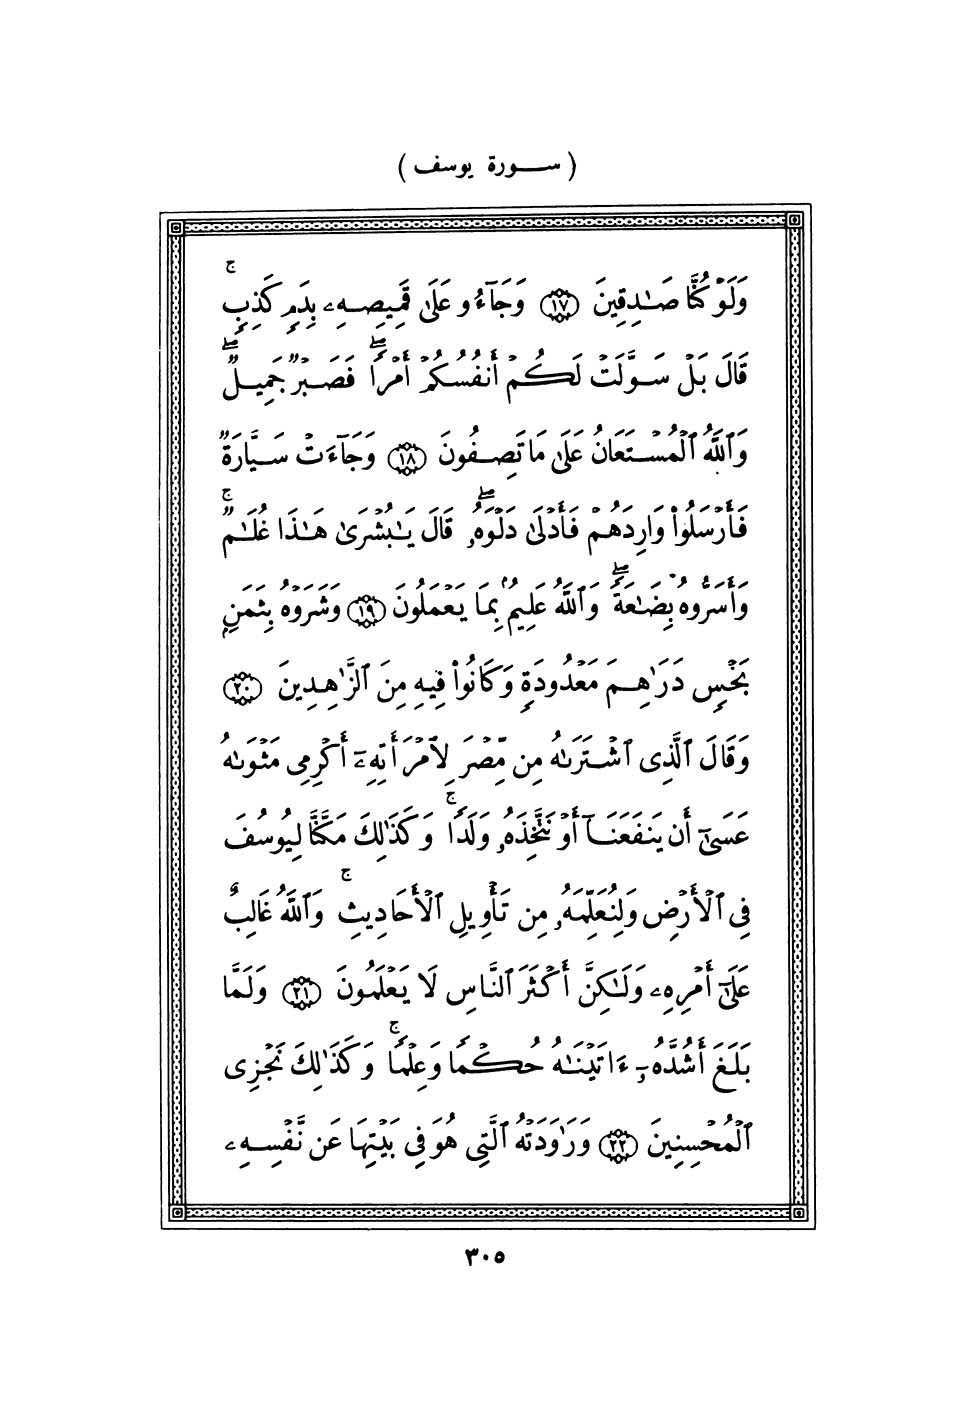 ( ســـورة يوسف )
وَلَوْ كُنَّا صَـٰدِقِينَ ١٧ وَجَآءُو عَلَىٰ قَمِيصِهِۦ بِدَمٍ كَذِبٍ ۚ
قَالَ بَلْ سَوَّلَتْ لَكُمْ أَنفُسُكُمْ أَمْرًا ۖ فَصَبْرٌ جَمِيلٌ ۖ
وَٱللَّهُ ٱلْمُسْتَعَانُ عَلَىٰ مَا تَصِفُونَ ١٨ وَجَآءَتْ سَيَّارَةٌ
فَأَرْسَلُوا۟ وَارِدَهُمْ فَأَدْلَىٰ دَلْوَهُۥ ۖ قَالَ يَـٰبُشْرَىٰ هَـٰذَا غُلَـٰمٌ ۚ
وَأَسَرُّوهُ بِضَـٰعَةً ۖ وَٱللَّهُ عَلِيمٌۢ بِمَا يَعْمَلُونَ ١٩ وَشَرَوْهُ بِثَمَنٍۭ
بَخْسٍ دَرَٰهِمَ مَعْدُودَةٍ وَكَانُوا۟ فِيهِ مِنَ ٱلزَّٰهِدِينَ ٢٠
وَقَالَ ٱلَّذِى ٱشْتَرَىٰهُ مِن مِّصْرَ لِٱمْرَأَتِهِۦٓ أَكْرِمِى مَثْوَىٰهُ
عَسَىٰٓ أَن يَنفَعَنَآ أَوْ نَتَّخِذَهُۥ وَلَدًا ۚ وَكَذَٰلِكَ مَكَّنَّا لِيُوسُفَ
فِى ٱلْأَرْضِ وَلِنُعَلِّمَهُۥ مِن تَأْوِيلِ ٱلْأَحَادِيثِ ۚ وَٱللَّهُ غَالِبٌ
عَلَىٰٓ أَمْرِهِۦ وَلَـٰكِنَّ أَكْثَرَ ٱلنَّاسِ لَا يَعْلَمُونَ ٢١ وَلَمَّا
بَلَغَ أَشُدَّهُۥٓ ءَاتَيْنَـٰهُ حُكْمًا وَعِلْمًا ۚ وَكَذَٰلِكَ نَجْزِى
ٱلْمُحْسِنِينَ ٢٢ وَرَٰوَدَتْهُ ٱلَّتِى هُوَ فِى بَيْتِهَا عَن نَّفْسِهِۦ
٣٠٥